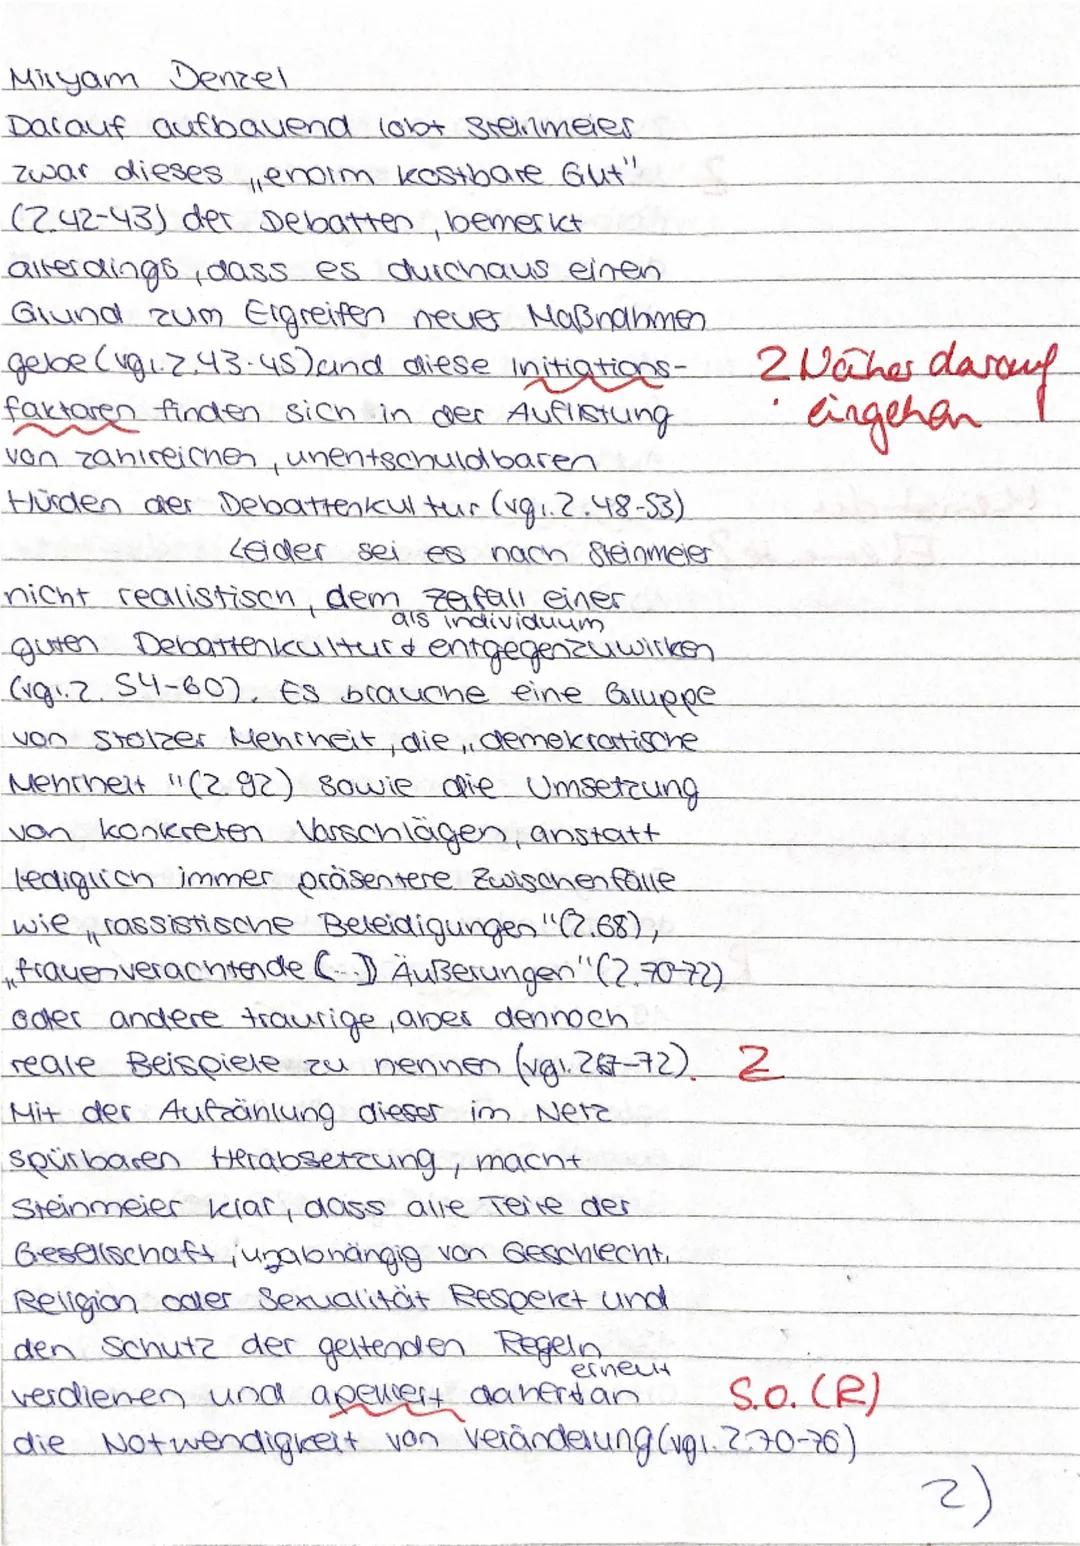 Miryam Denzel
Darauf aufbauend lobt Steinmeier
zwar dieses „enorm kostbare Gut"
(Z.42-43) der Debatten, bemerkt
allerdings, dass es durchaus einen
Grund zum Ergreifen neuer Maßnahmen
gebe (vgl. Z.43-45) und diese Initiations-
2 Näher darauf
faktoren finden sich in der Auflistung
eingehen
von zahlreichen, unentschuldbaren
Hürden der Debattenkultur (vgl. Z.48-53)
Leider sei es nach Steinmeier
nicht realistisch, dem Zerfall einer
als individuum
guten Debattenkultur entgegenzuwirken
(vgl. Z. 54-60). Es brauche eine Gruppe
von stolzer Mehrheit, die „demokratische
Mehrheit "(Z.92) sowie die Umsetzung
von konkreten Vorschlägen, anstatt
lediglich immer präsentere Zwischenfälle
wie „rassistische Beleidigungen"(Z.68),
„frauenverachtende (...) Äußerungen"(Z.70-72)
oder andere traurige, aber dennoch
reale Beispiele zu nennen (vgl. Z67-72). Z
Mit der Aufzählung dieser im Netz
spürbaren Herabsetzung, macht
Steinmeier klar, dass alle Teile der
Gesellschaft, unabhängig von Geschlecht,
Religion oder Sexualität Respekt und
den Schutz der geltenden Regeln
erneut
verdienen und apeliert daher an S.O. (R)
die Notwendigkeit von Veränderung (vgl. Z.70-76)
2)